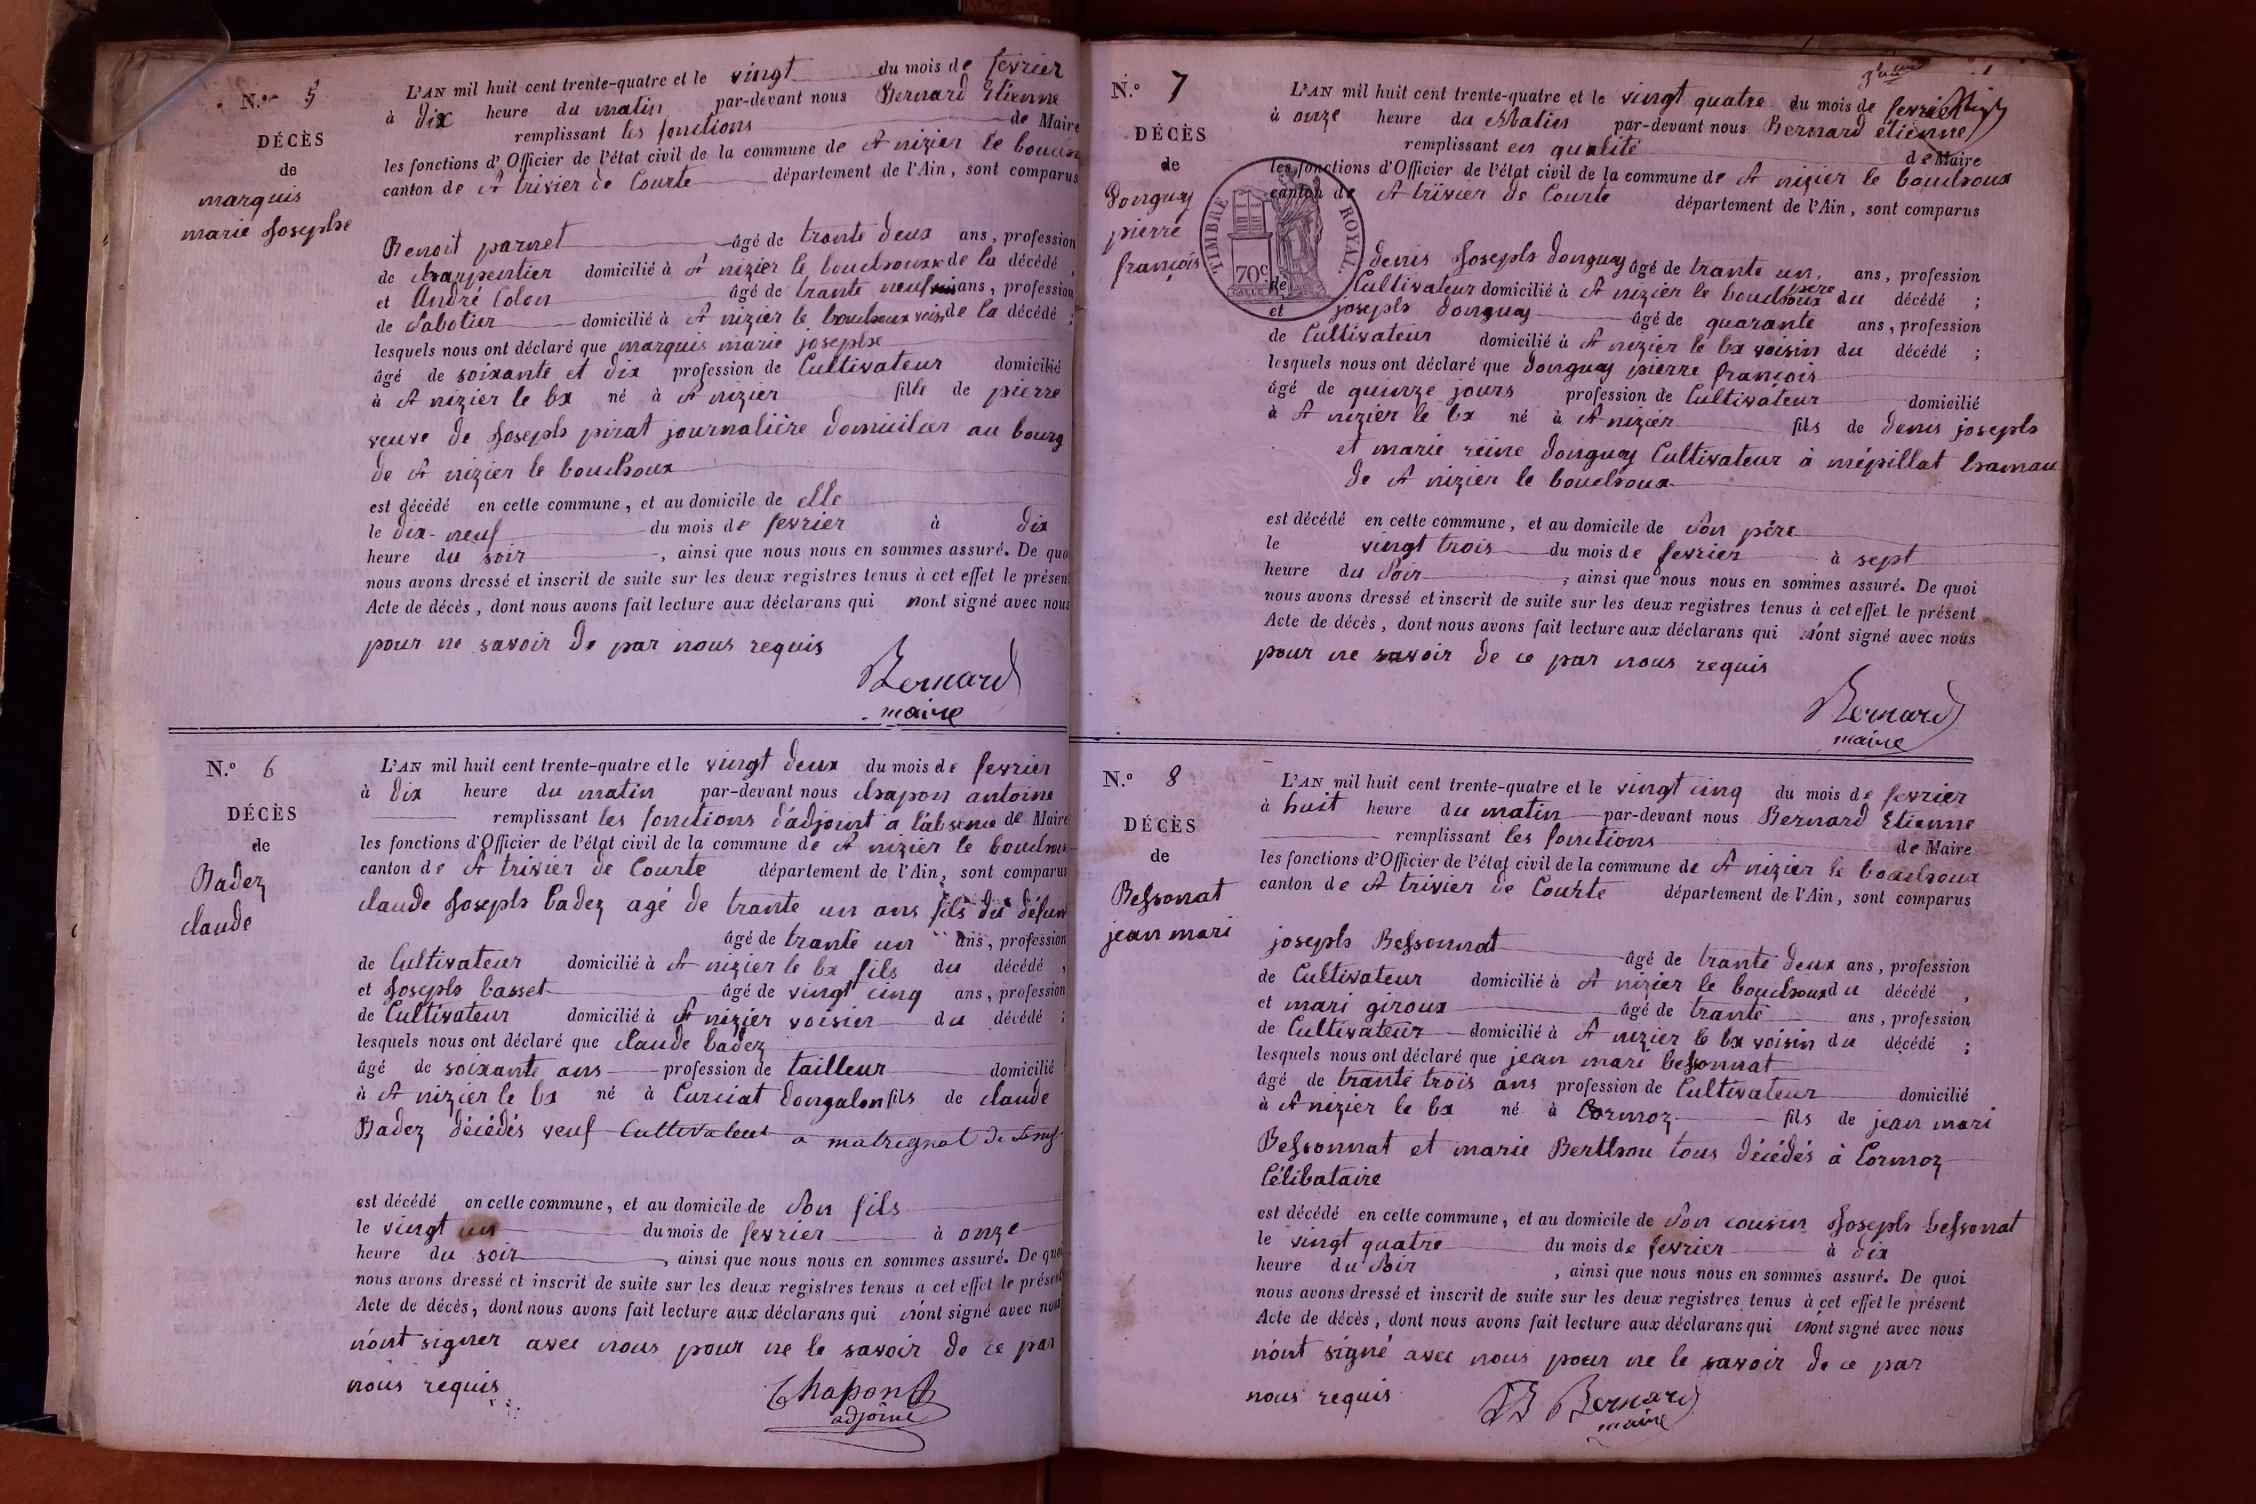 N.º 5
DÉCÈS
de
marquis
marie Josephe
L'AN mil huit cent trente-quatre et le vingt du mois de fevrier
à dix heure du matin par-devant nous Bernard Etienne
remplissant les fonctions de Maire
les fonctions d'Officier de l'état civil de la commune de St nizier le bouch
canton de St trivier de Courte département de l'Ain, sont comparus
Benoit parnet âgé de trante deux ans, profession
de charpentier domicilié à St nizier le bouchoux de la décédé,
et André Colon âgé de trante neuf ans, profession
de Sabotier domicilié à St nizier le bouchoux voisin de la décédé;
lesquels nous ont déclaré que marquis marie josephe
âgé de soixante et dix profession de Cultivateur domicilié
à St nizier le bx né à St nizier fille de pierre
veuve de Joseph pirat journalière domicilier au bourg
de St nizier le bouchoux
est décédé en cette commune, et au domicile de elle
le dix-neuf du mois de fevrier à dix
heure du soir, ainsi que nous nous en sommes assuré. De quo
nous avons dressé et inscrit de suite sur les deux registres tenus à cet effet le présen
Acte de décès, dont nous avons fait lecture aux déclarans qui nont signé avec nous
pour ne savoir de par nous requis
Bernard
maire
N.º 6
DÉCÈS
de
Badez
claude
L'AN mil huit cent trente-quatre et le vingt deux du mois de fevrier
à dix heure du matin par-devant nous chapon antoine
remplissant les fonctions d'adjoint a l'absence de Maire
les fonctions d'Officier de l'état civil de la commune de St nizier le bouchoux
canton de St trivier de Courte département de l'Ain, sont comparus
claude Joseph badez agé de trante un ans fils du défun
âgé de trante un ans, profession
de Cultivateur domicilié à St nizier le bx fils du décédé,
et Joseph basset âgé de vingt cinq ans, profession
de Cultivateur domicilié à St nizier voisin du décédé;
lesquels nous ont déclaré que claude badez
âgé de soixante ans profession de tailleur domicilié
à St nizier le bx né à Curciat dongalon fils de claude
Badez décédés veuf Cultivateur a matregnat de
est décédé en cette commune, et au domicile de Son fils
le vingt un du mois de fevrier à onze
heure du soir, ainsi que nous nous en sommes assuré. De quoi
nous avons dressé et inscrit de suite sur les deux registres tenus a cet effet le présent
Acte de décès, dont nous avons fait lecture aux déclarans qui n'ont signé avec nous
n'ont signer avec nous pour ne le savoir de ce par
nous requis
Chapon
adjoint
N.º 7
DÉCÈS
de
Donguy
pierre
françois
L'AN mil huit cent trente-quatre et le vingt quatre du mois de fevrier
à onze heure du Matin par-devant nous Bernard etienne
remplissant en qualité de Maire
les fonctions d'Officier de l'état civil de la commune de St nizier le bouchoux
canton de St trivier de Courte département de l'Ain, sont comparus
TIMBRE ROYAL
70c
denis Joseph donguy âgé de trante un, ans, profession
de Cultivateur domicilié à St nizier le bouchoux pere du décédé;
et joseph donguy âgé de quarante ans, profession
de Cultivateur domicilié à St nizier le bx voisin du décédé;
lesquels nous ont déclaré que donguy pierre françois
âgé de quinze jours profession de Cultivateur domicilié
à St nizier le bx né à St nizier fils de denis joseph
et marie reine donguy Cultivateur à mépillat hamau
de St nizier le bouchoux
est décédé en cette commune, et au domicile de Son père
le vingt trois du mois de fevrier à sept
heure du Soir; ainsi que nous nous en sommes assuré. De quoi
nous avons dressé et inscrit de suite sur les deux registres tenus à cet effet le présent
Acte de décès, dont nous avons fait lecture aux déclarans qui n'ont signé avec nous
pour ne savoir de ce par nous requis
Bernard
maire
N.º 8
DÉCÈS
de
Bessonat
jean mari
L'AN mil huit cent trente-quatre et le vingt cinq du mois de fevrier
à huit heure du matin par-devant nous Bernard Etienne
remplissant les fonctions de Maire
les fonctions d'Officier de l'état civil de la commune de St nizier le bouchoux
canton de St trivier de Courte département de l'Ain, sont comparus
joseph Bessonnat âgé de trante deux ans, profession
de Cultivateur domicilié à St nizier le bouchoux du décédé,
et mari giroux âgé de trante ans, profession
de Cultivateur domicilié à St nizier le bx voisin du décédé;
lesquels nous ont déclaré que jean mari bessonnat
âgé de trante trois ans profession de Cultivateur domicilié
à St nizier le bx né à Cormoz fils de jean mari
Bessonnat et marie Berthou tous décédés à Cormoz
Célibataire
est décédé en cette commune, et au domicile de Son cousin Joseph bessonat
le vingt quatre du mois de fevrier à dix
heure du Soir, ainsi que nous nous en sommes assuré. De quoi
nous avons dressé et inscrit de suite sur les deux registres tenus à cet effet le présent
Acte de décès, dont nous avons fait lecture aux déclarans qui n'ont signé avec nous
n'ont signé avec nous pour ne le savoir de ce par
nous requis
Bernard
maire